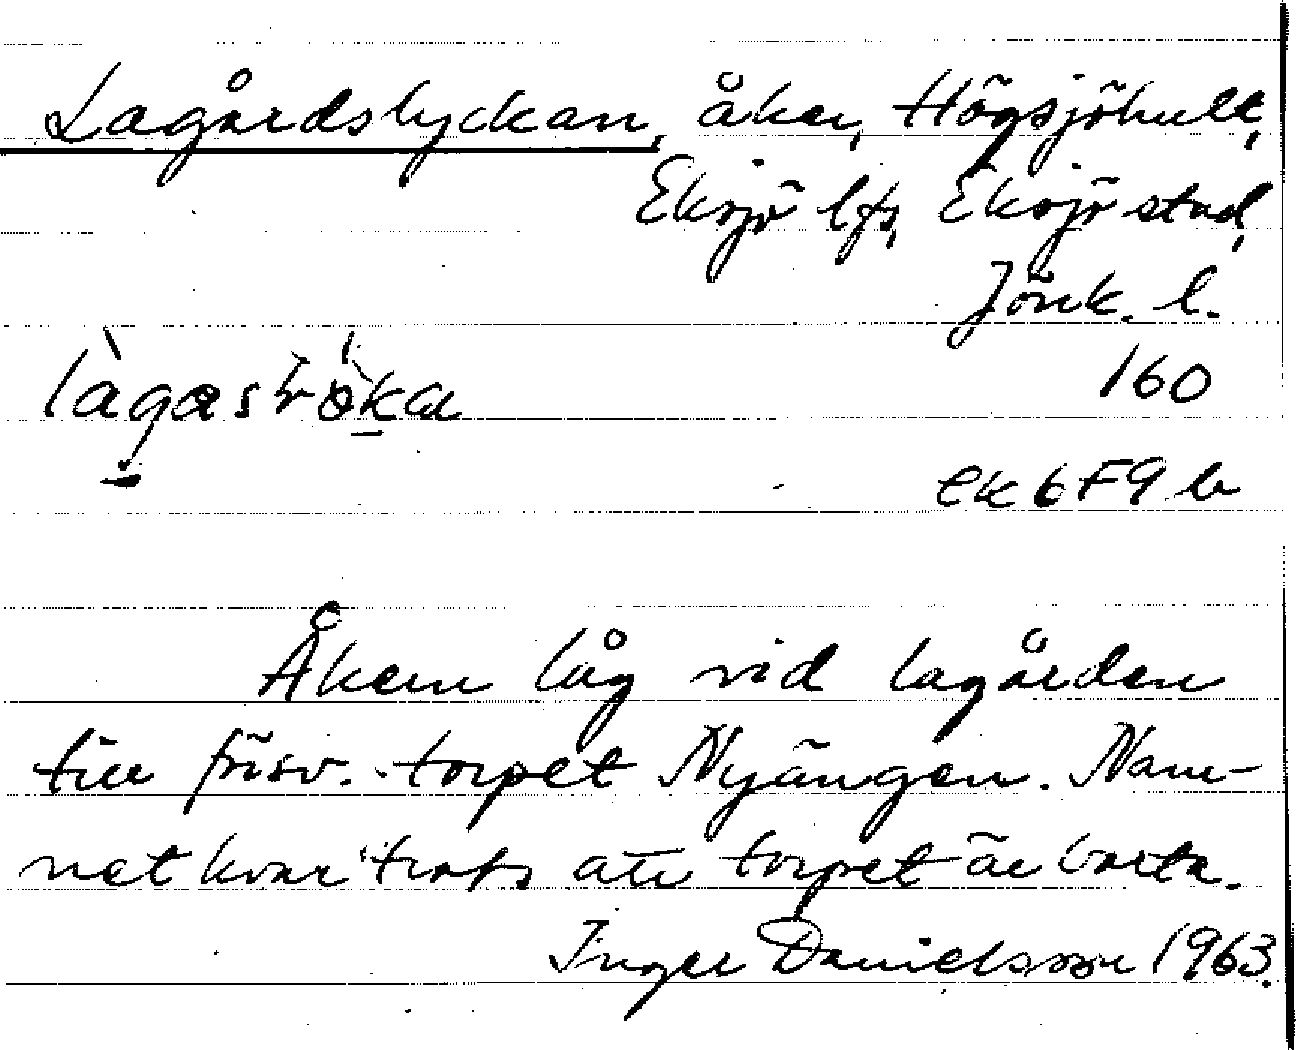 Lagårdslyckan, åker, Högsjöhult,
Eksjö lfs, Eksjö stad,
Jönk. l.
160
ek 6F9 b
Åkern låg vid lagården
till försv. torpet Nyängen. Nam-
net kvar trots att torpet är borta.
Inger Danielsson 1963.